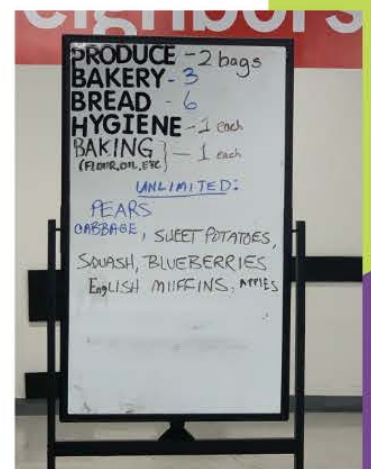 eighbors
PRODUCE - 2 bags
BAKERY - 3
BREAD - 6
HYGIENE - 1 each
BAKING } - 1 each
(FLOUR, OIL, ETC)
UNLIMITED:
PEARS
CABBAGE, SWEET POTATOES,
SQUASH, BLUEBERRIES
EnglISH MUFFINS, APPLES